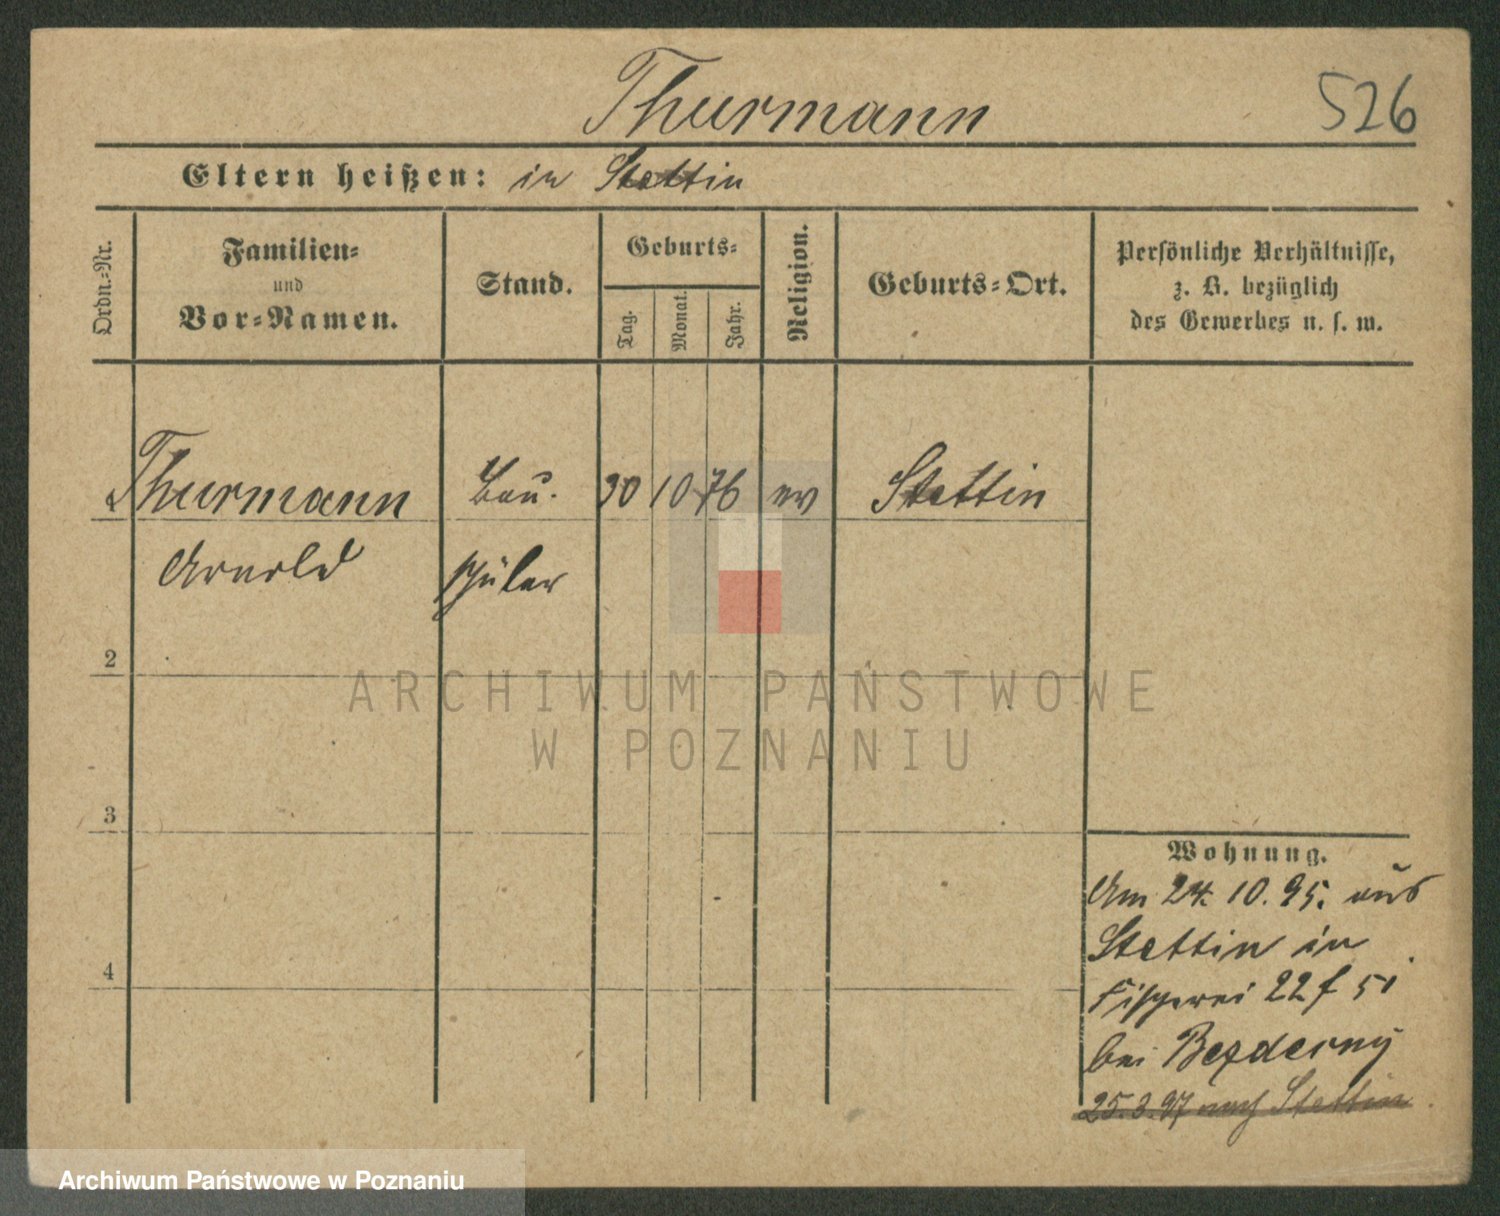 Thurmann
526
Eltern heißen: in Stettin
Ordn.-Nr.
Familien-
und
Vor-Namen.
Stand.
Geburts-
Tag.
Monat.
Jahr.
Religion.
Geburts-Ort.
Persönliche Verhältnisse,
z. B. bezüglich
des Gewerbes u. s. w.
1 Thurmann Bau. 30 10 76 ev Stettin
Arnold schüler
2
ARCHIWUM PAŃSTWOWE
W POZNANIU
3
4
Wohnung.
Am 24. 10. 95. aus
Stettin in
Fischerei 22 f 51
bei Bezderny
25.3.97 nach Stettin
Archiwum Państwowe w Poznaniu